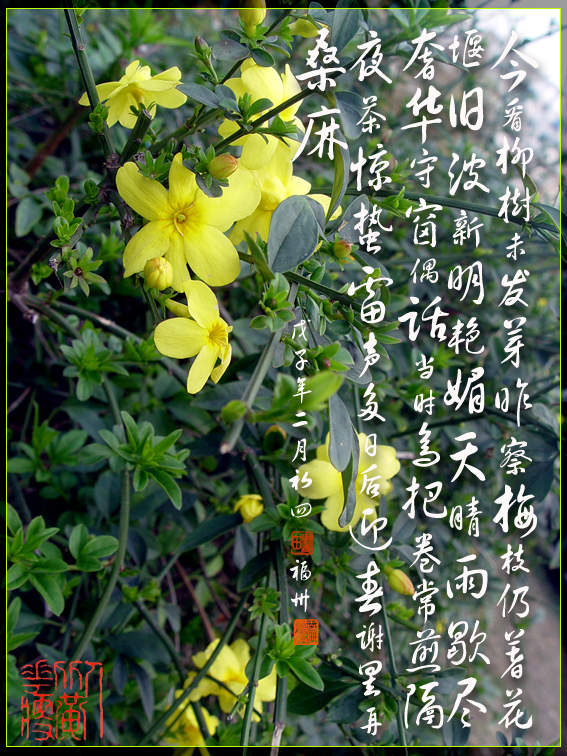 今看柳樹未发芽昨察梅枝仍著花
堰旧波新明艳媚天晴雨歇尽
奢华守窗偶话当时為把卷常煎隔
夜茶惊蛰雷声多日后迎春谢罢再
桑麻
戊子年二月初四
福州